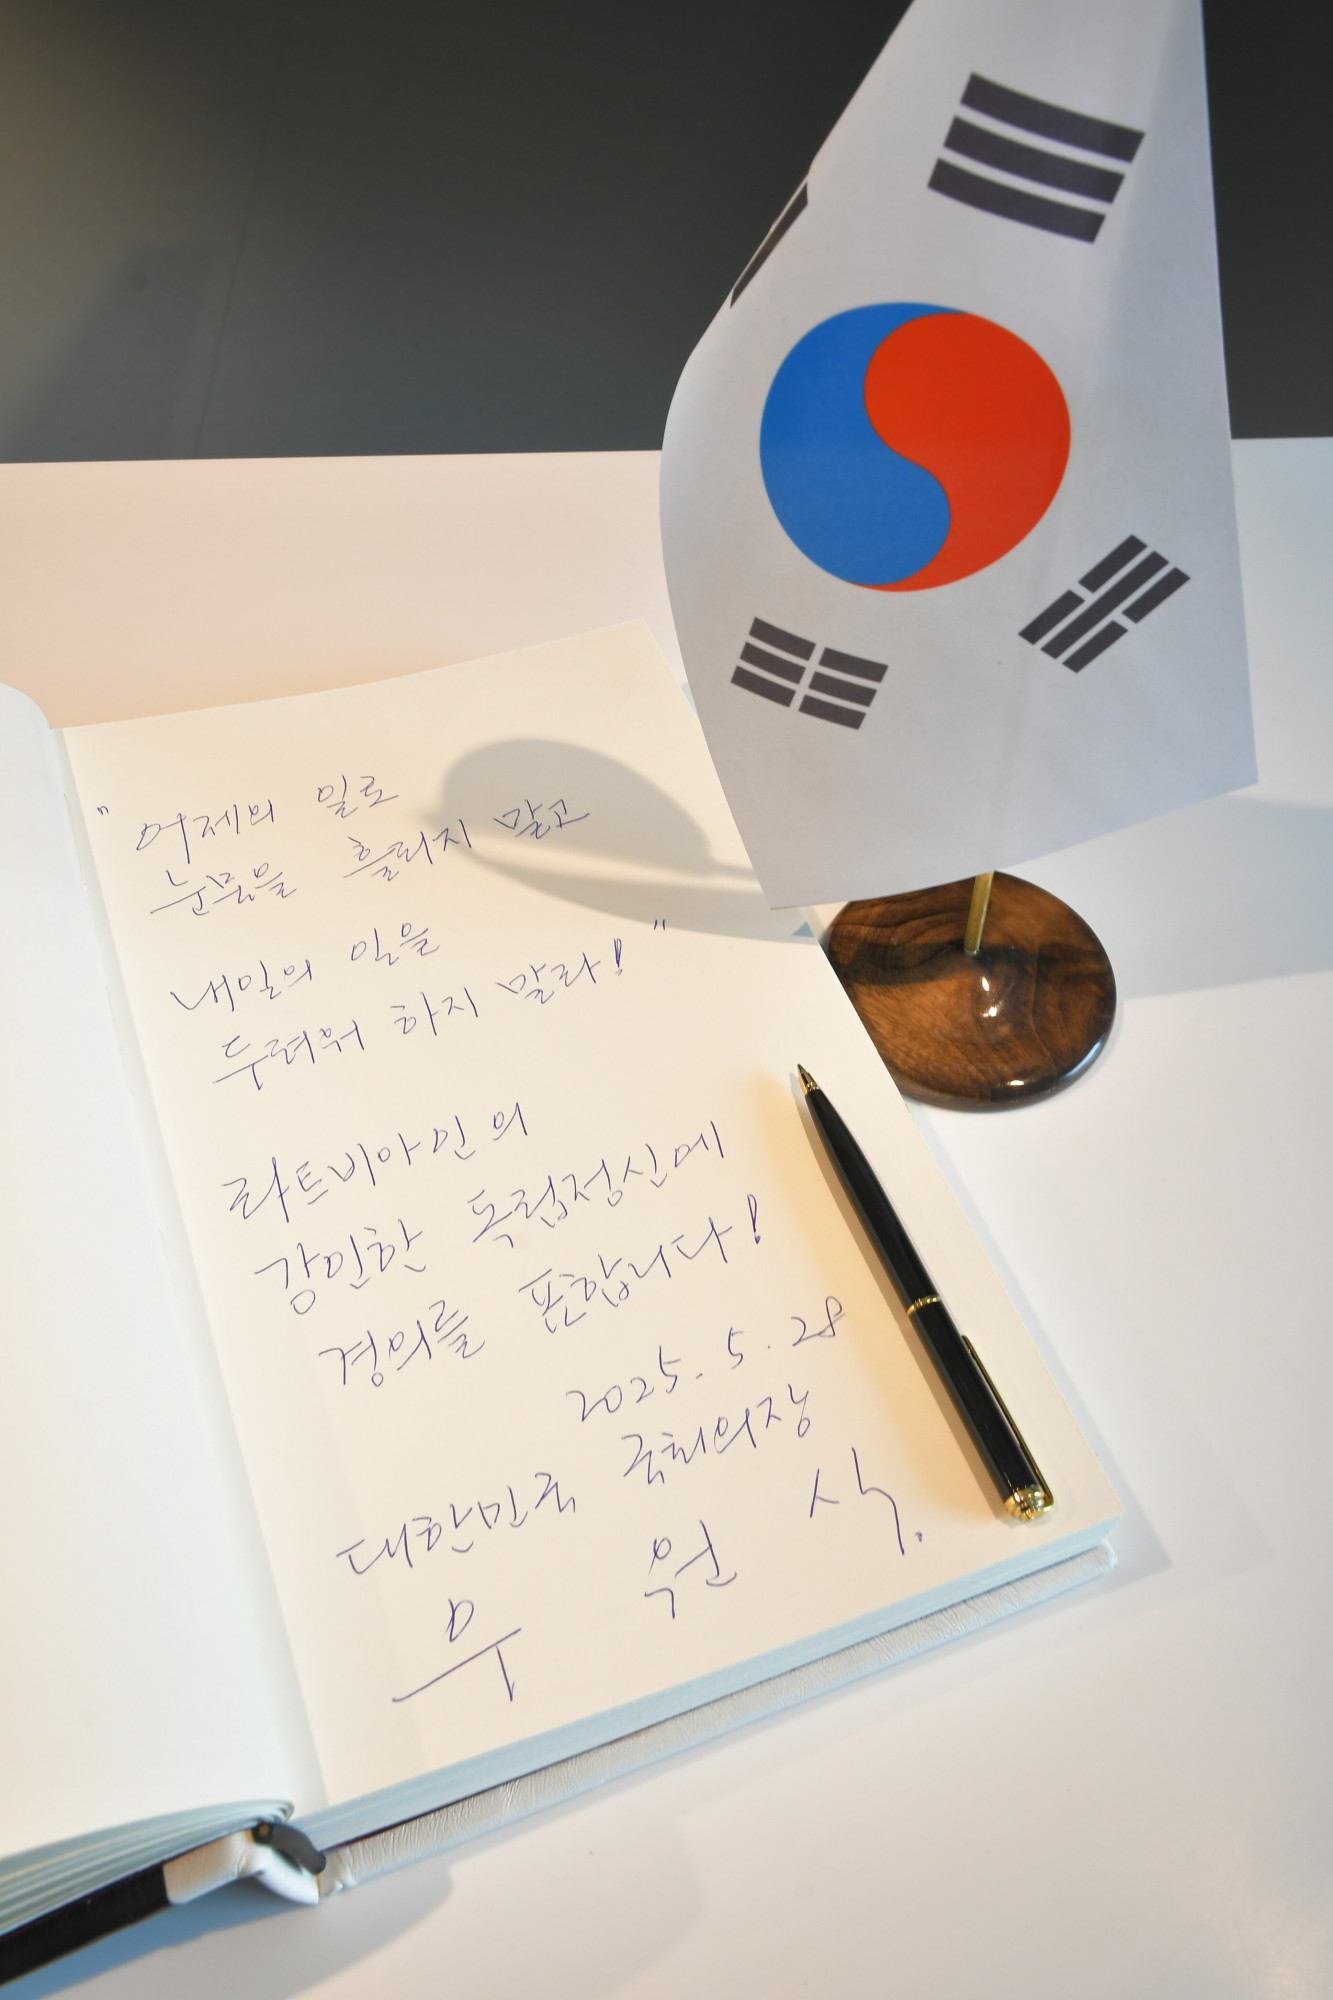 "어제의 일로
눈물을 흘리지 말고
내일의 일을
두려워 하지 말라!"
라트비아인의
강인한 독립정신에
경의를 표합니다!
2025. 5. 28
대한민국 국회의장
우 원 식.